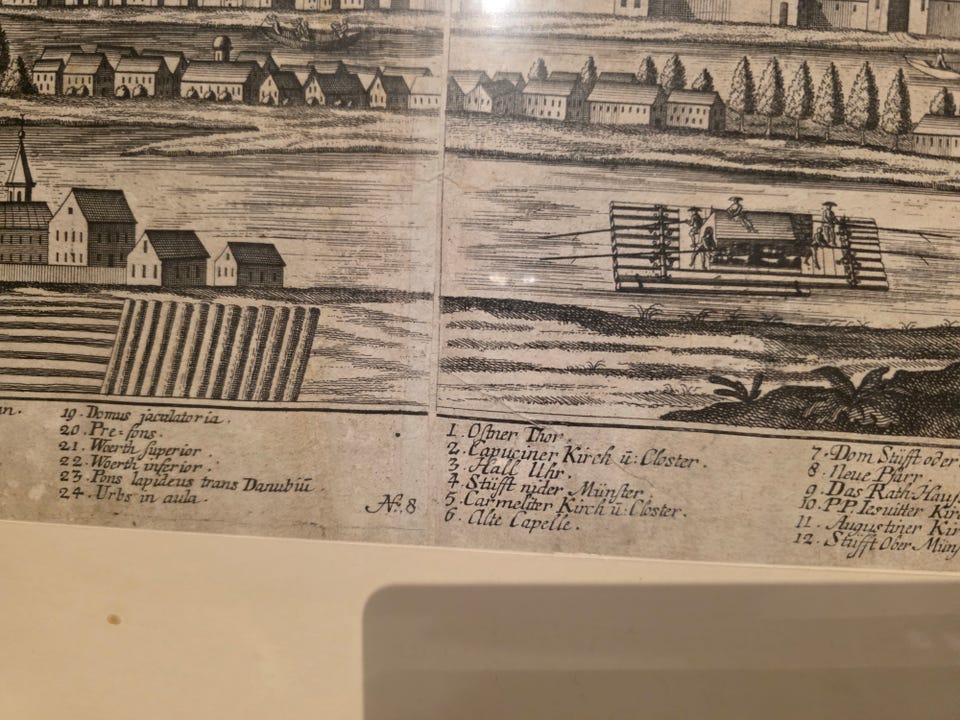 an.
19. Domus jaculatoria.
20. Pre-sons.
21. Woerth superior.
22. Woerth inferior.
23. Pons lapideus trans Danubiū
24. Urbs in aula.
No. 8
1. Ostner Thor.
2. Capuciner Kirch ū: Closter.
3. Hall Uhr.
4. Stüfft nider Münster.
5. Carmeliter Kirch ū: Closter.
6. Alte Capelle.
7. Dom Stüfft oder
8. Neue Pfarr.
9. Das Rath Hauß
10. P.P. Iesuitter Kir
11. Augustiner Kir
12. Stüfft Ober Mün